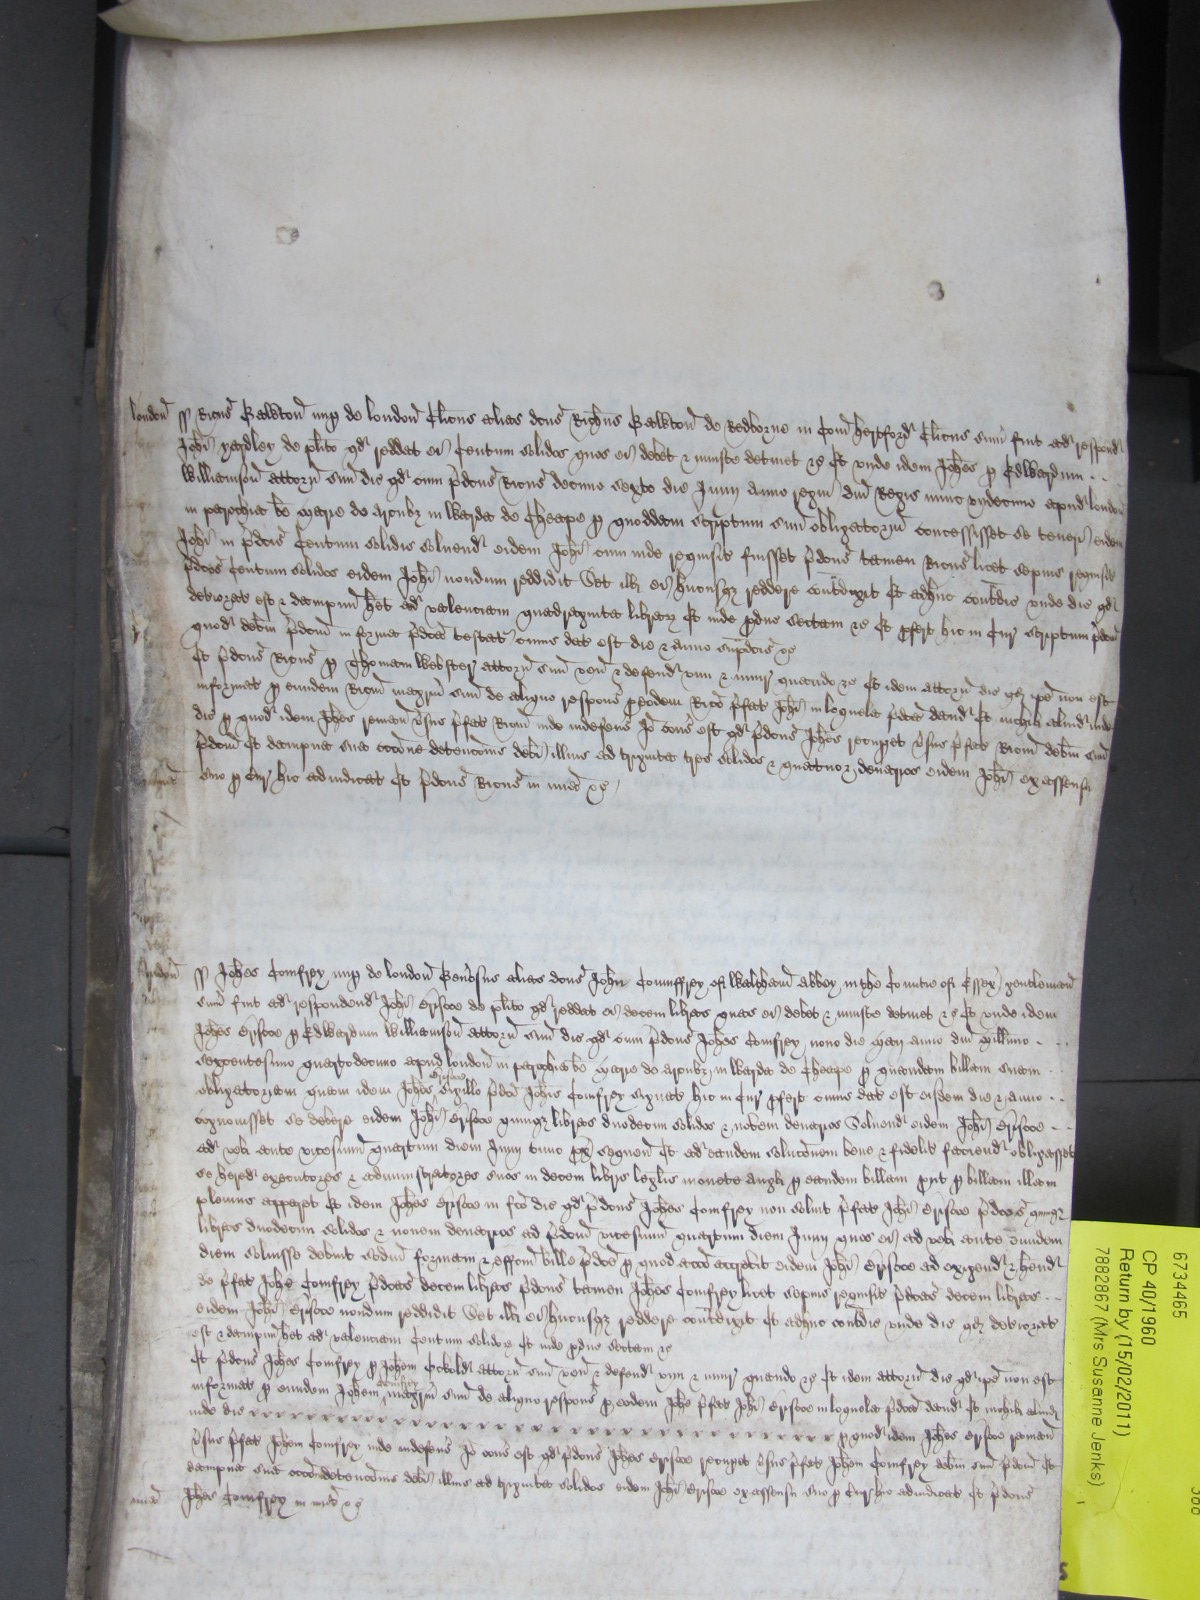 London ss Ricus Balkton nup de London Clicus alias dcus Richus Balkton de Redborne in Com hertford Clicus sum fuit ad respond
Johi yardley de plito qd reddat ei Centum solidos quos ei debet & iniuste detinet &c Et unde idem Johes p Edwardum
Williamson attorn suu dic qd cum pdcus Ricus decimo sexto die Junij anno regni dni Regis nunc undecimo apud london
in parochia be Marie de arcubz in warda de Cheape p quoddam scriptum suu obligatorium concessisset se teneri eidem
Johi in pdcis Centum solidis solvend eidem Johi cum inde requisit fuisset pdcus tamen Ricus licet sepius requisit
pdcos Centum solidos eidem Johi nondum reddidit Set ill ei hucusqz reddere contradixit Et adhuc contradic unde dic qd
deteriorat est & dampnu het ad valenciam quadraginta librarz Et inde pduc sectam &c Et pfert hic in Cur scriptum pdcm
quod debitum pdcm in forma pdca testat cuius dat est die & anno supdcis &c
Et pdcus Ricus p Thomam Webster attorn suu ven & defend vim & iniur quando &c Et idem attorn dic qd ipe non est
informat p eundem Ricum magrum suu de aliquo respons p eodem Rico pfat Johi in loquela pdca dand Et nichil aliud inde
dic p quod idem Johes reman vsus pfat Ricum inde indefens Io cons est qd pdcus Johes recupet vsus pfat Ricum debm suu
pdcm Et dampna sua occone detencionis debi illius ad triginta tres solidos & quattuor denarios eidem Johi ex assensu
suo p Cur hic adiudicat Et pdcus Ricus in mia &c
London ss Johes Comfrey nup de London alias dcus John Coumffrey of Waltham abbey in the Countie of Essex gentleman
sum fuit ad respondend Johi Brisco de plito qd reddat ei decem libras quas ei debet & iniuste detinet &c Et unde idem
Johes Brisco p Edwardum Williamson attorn suu dic qd cum pdcus Johes Comfrey nono die Maij anno dni Millimo
sexcentesimo quartodecimo apud London in parochia be Marie de arcubz in warda de Cheape p quandam billam suam
obligatoriam quam idem Johes Brisco sigillo pdci Johis Comfrey signat hic in Cur pfert cuius dat est eisdem die & anno
cognouisset se debere eidem Johi Brisco quinqz libras duodecim solidos & novem denarios Solvend eidem Johi Brisco
ad vel ante vicesimum quartum diem Junij tunc px sequen Et ad eandem solucionem bene & fidelit faciend obligasset
se hered executores & administratores suos in decem libris leglis monete angli p eandem billam put p billam illam
plenius apparet Et idem Johes Brisco in fco dic qd pdcus Johes Comfrey non soluit pfat Johi Brisco pdcas quinqz
libras duodecim solidos & novem denarios ad pdcm vicesimum quartum diem Junij quos ei ad vel ante eundem
diem soluisse debuit scdum formam & effcum bille pdce p quod acco accrevit eidem Johi Brisco ad exigend & hend
de pfat Johe Comfrey pdcas decem libras pdcus tamen Johes Comfrey licet sepius requisit pdcas decem libras
eidem Johi Brisco nondum reddidit Set ill ei hucusqz reddere contradixit Et adhuc contradic unde dic qd deteriorat
est & dampnu het ad valenciam Centum solidorz Et inde pduc sectam &c
Et pdcus Johes Comfrey p Johem attorn suu ven & defend vim & iniur quando &c Et idem attorn dic qd ipe non est
informat p eundem Johem Comfrey magrum suu de aliquo respons p eodem Johe pfat Johi Brisco in loquela pdca dand Et nichil aliud
inde dic p quod idem Johes Brisco reman
vsus pfat Johem Comfrey inde indefens Io cons est qd pdcus Johes Brisco recupet vsus pfat Johem Comfrey debm suu pdcm Et
dampna sua occone detencionis debi illius ad triginta solidos eidem Johi Brisco ex assensu suo p Cur hic adiudicat Et pdcus
mia Johes Comfrey in mia &c
6734465
CP 40/1960
Return by (15/02/2011)
7882867 (Mrs Susanne Jenks)